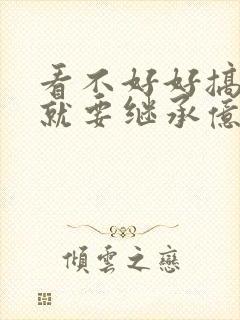 看不好好搞
就要继承億
傾雲之戀